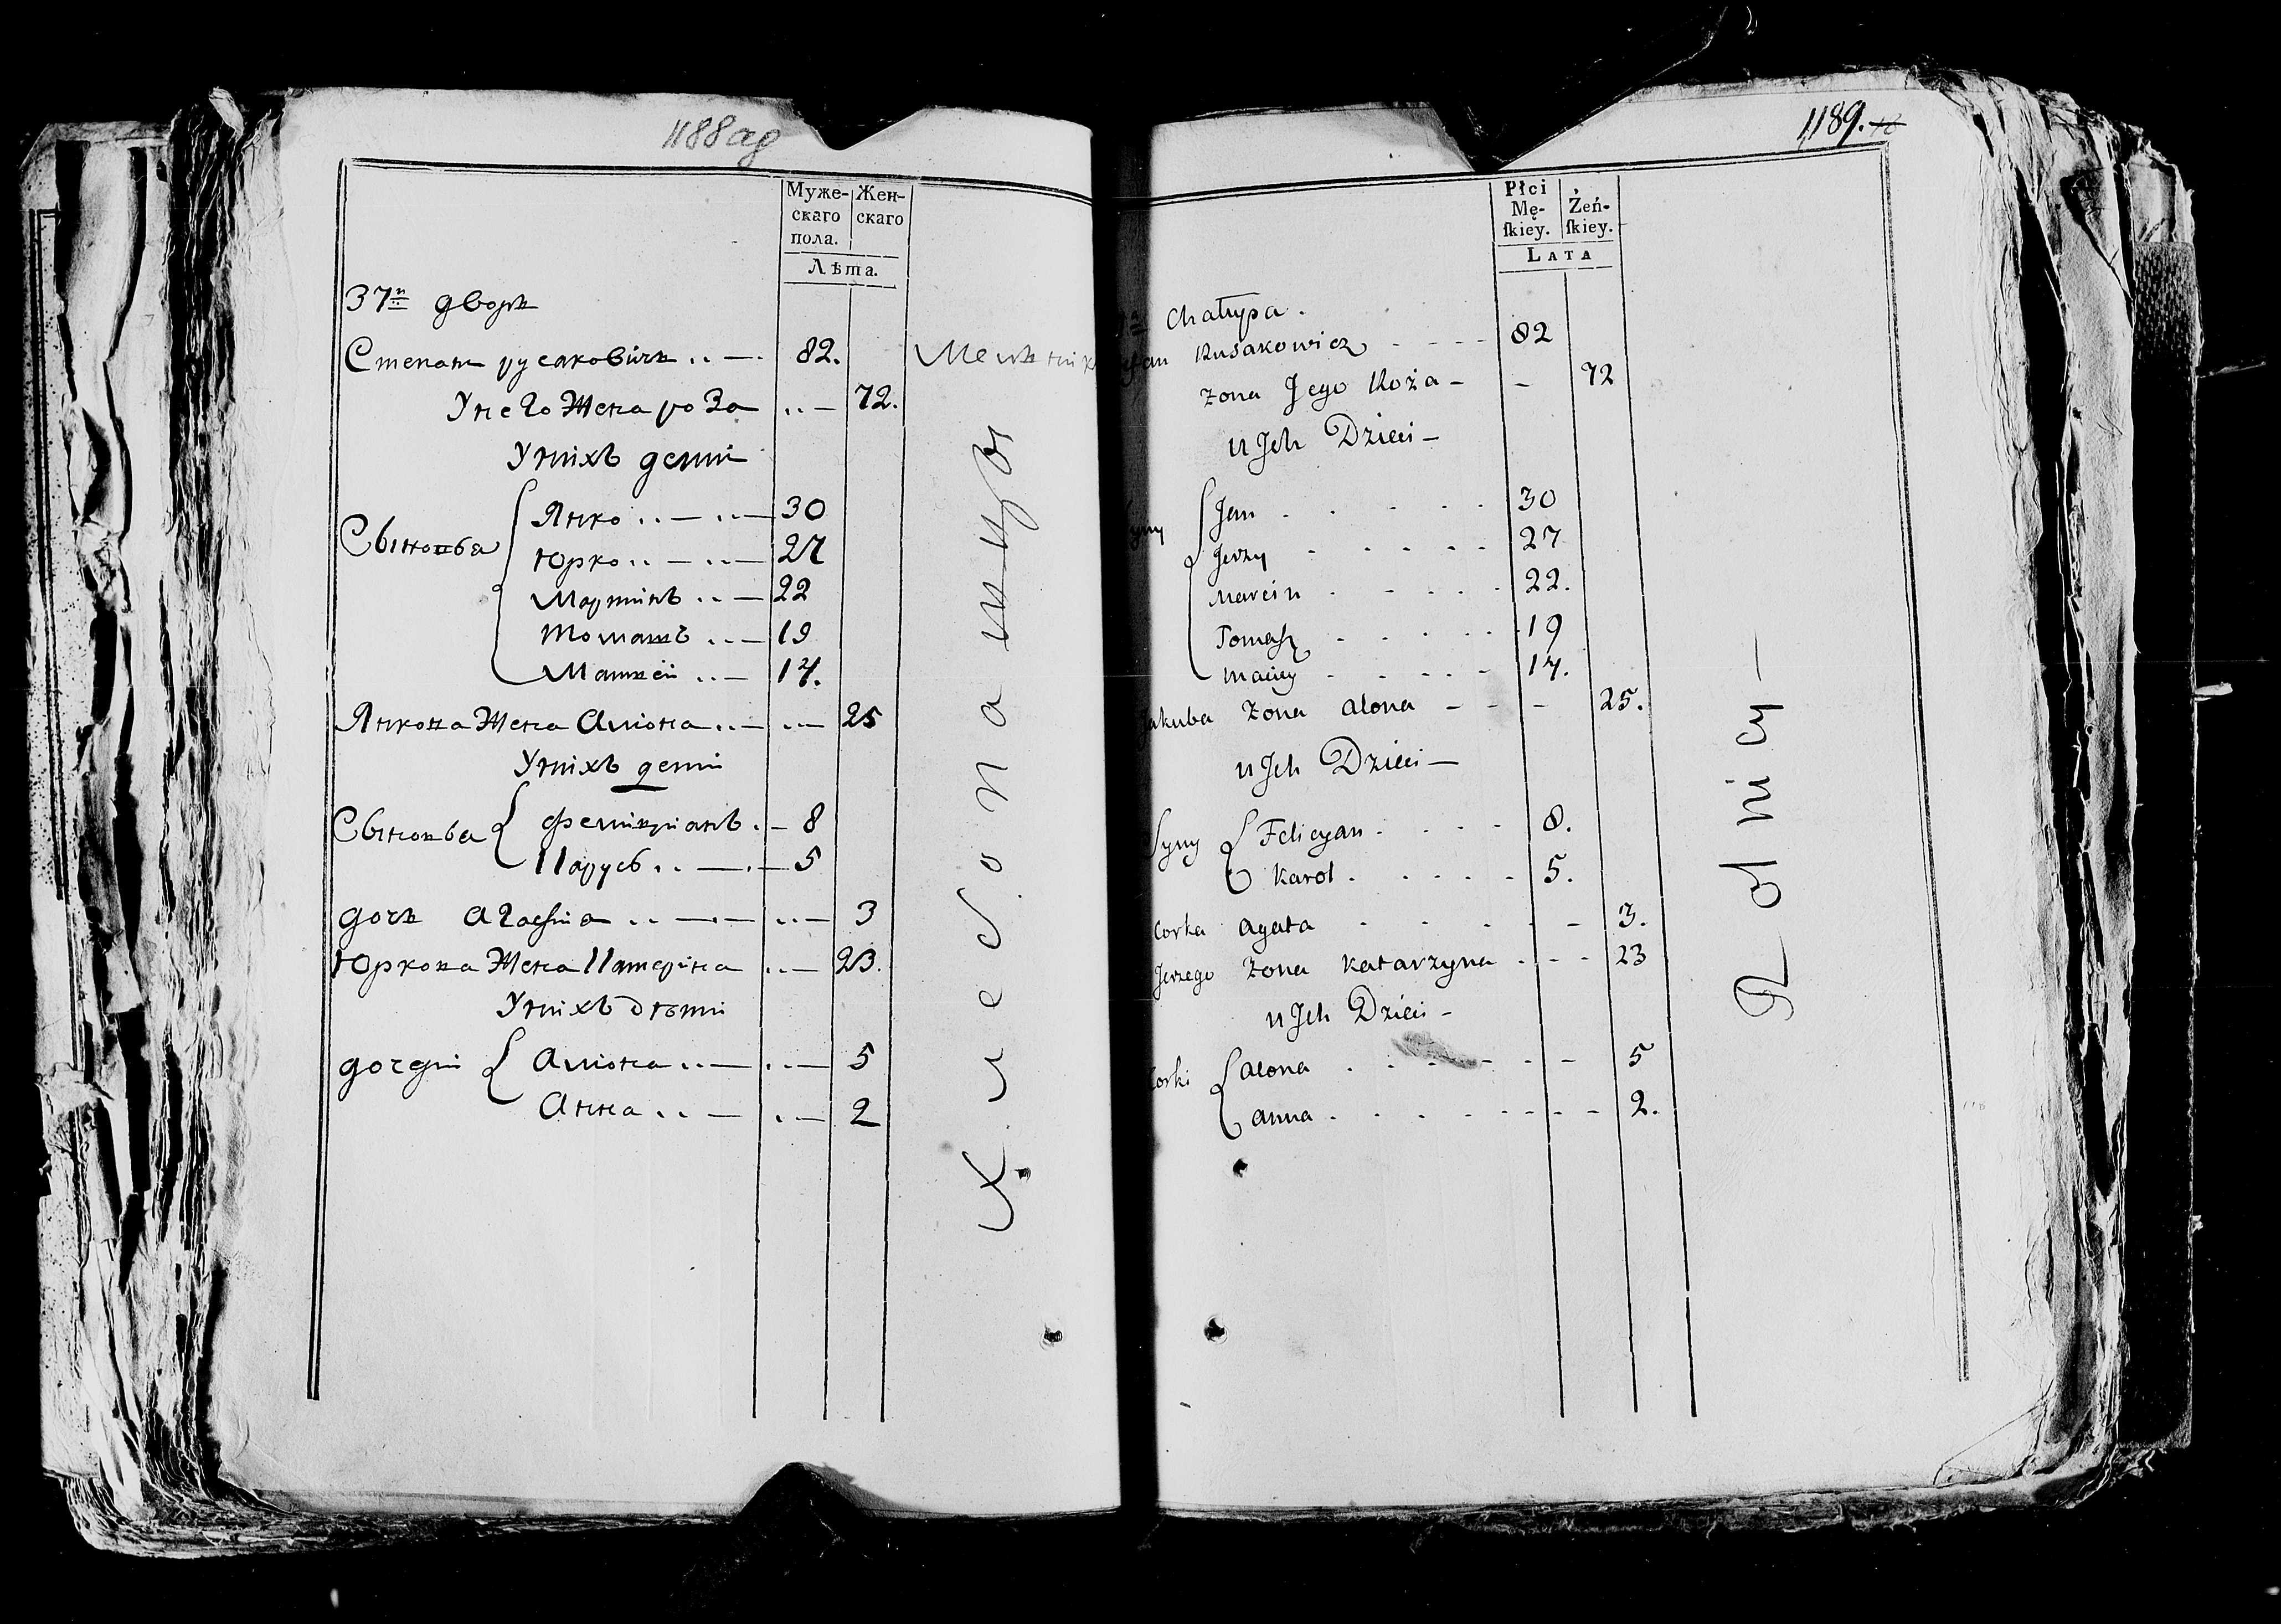 1188 аg
Муже-
скаго
пола.
Жен-
скаго
Лѣта.
37й дворъ
Степанъ русаковичъ 82.
У него жена роза 72.
У нихъ дети
Сыновья
Янко 30
Юрко 27
Мартинъ 22
Томашъ 19
Матвеи 17.
Янкова жена Алiона 25
У нихъ дети
Сыновья
Фелицианъ 8
Карусь 5
дочь Агафиа 3
Юркова жена Катерина 23.
У нихъ дѣти
дочери
Алiона 5
Анна 2
хлебопашцы
1189. 18
Płci
Mę-
ſkiey.
Żeń-
ſkiey.
LATA
Chałupa.
Rusakowicz 82
Zona Jego Roża 72
u Ich Dzieci
Syny
Jan 30
Jerzy 27
Marcin 22.
Tomasz 19
Maciey 17.
Jakuba Zona Alona 25.
u Ich Dzieci
Syny
Felicyan 8.
Karol 5.
Corka Agata 3.
Jerzego Zona Katarzyna 23
u Ich Dzieci
Corki
Alona 5
Anna 2.
Rolnicy